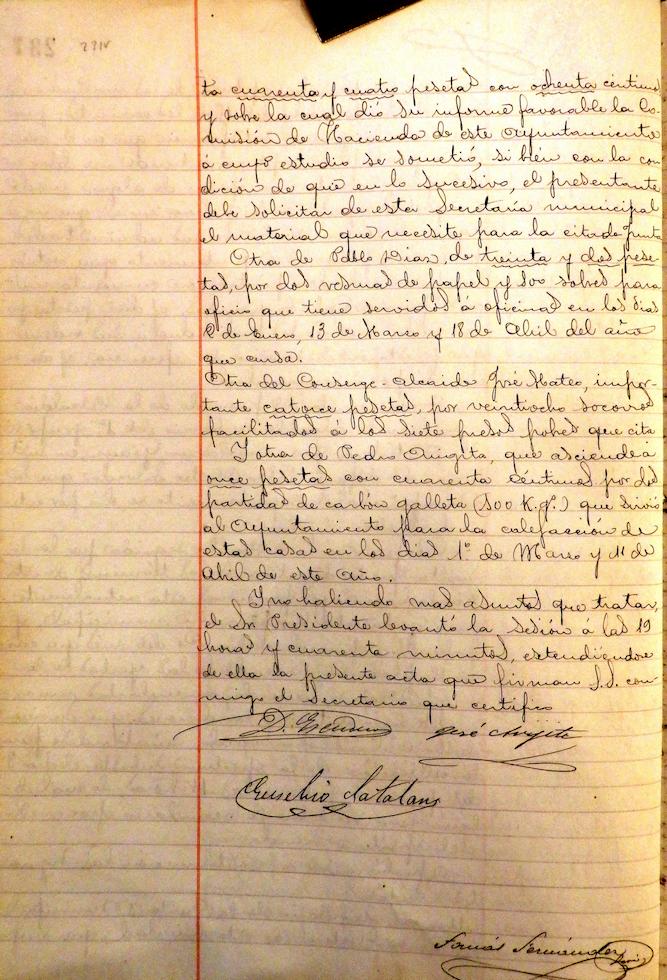 ta cuarenta y cuatro pesetas con ochenta céntimos
y sobre la cual dió su informe favorable la Co-
misión de Hacienda de este Ayuntamiento
á cuyo estudio se sometió, si bien con la con-
dición de que en lo sucesivo, el presentante
debe solicitar de esta Secretaría municipal
el material que necesite para la citada Junta
Otra de Pablo Diaz, de treinta y dos pese-
tas, por dos resmas de papel y 500 sobres para
oficio que tiene servidos á oficinas en los dias
2 de Enero, 13 de Marzo y 18 de Abril del año
que cursa.
Otra del Conserge-alcaide José Mateo, impor-
tante catorce pesetas, por veintiocho socorros
facilitados á los siete presos pobres que cita
Y otra de Pedro que asciende á
once pesetas con cuarenta céntimos por dos
partidas de carbón galleta (300 K.gs.) que sirvió
al Ayuntamiento para la calefacción de
estas casas en los dias 1º de Marzo y 11 de
Abril de este Año.
Y no habiendo mas asuntos que tratar,
el Sr Presidente levantó la sesión á las 19
horas y cuarenta minutos, extendiéndose
de ella la presente acta que firman S.S. con-
migo el Secretario que certifico
D. José
Eusebio Catalan
Tomás Fernández